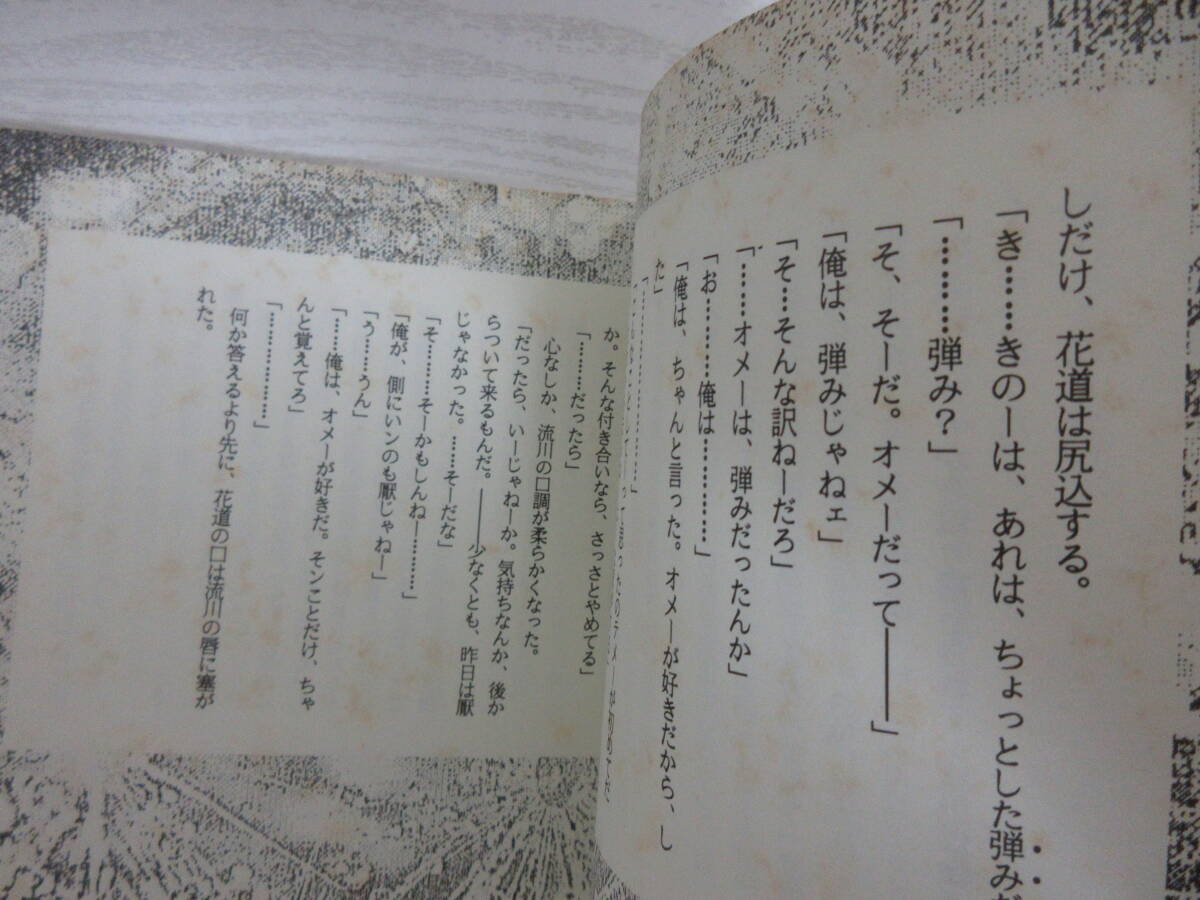 しだけ、花道は尻込する。
「き……きのーは、あれは、ちょっとした弾みだ
「………弾み？」
「そ、そーだ。オメーだって――――」
「俺は、弾みじゃねェ」
「そ…そんな訳ねーだろ」
「……オメーは、弾みだったんか」
「お………俺は…………」
「俺は、ちゃんと言った。オメーが好きだから、し
た」
「………………」
か。そんな付き合いなら、さっさとやめてる」
「………だったら」
心なしか、流川の口調が柔らかくなった。
「だったら、いーじゃねーか。気持ちなんか、後か
らついて来るもんだ。――――少なくとも、昨日は厭
じゃなかった。……そーだな」
「そ…………そーかもしんねー…………」
「俺が、側にいンのも厭じゃねー」
「う………うん」
「……俺は、オメーが好きだ。そンことだけ、ちゃ
んと覚えてろ」
「………………」
何か答えるより先に、花道の口は流川の唇に塞が
れた。